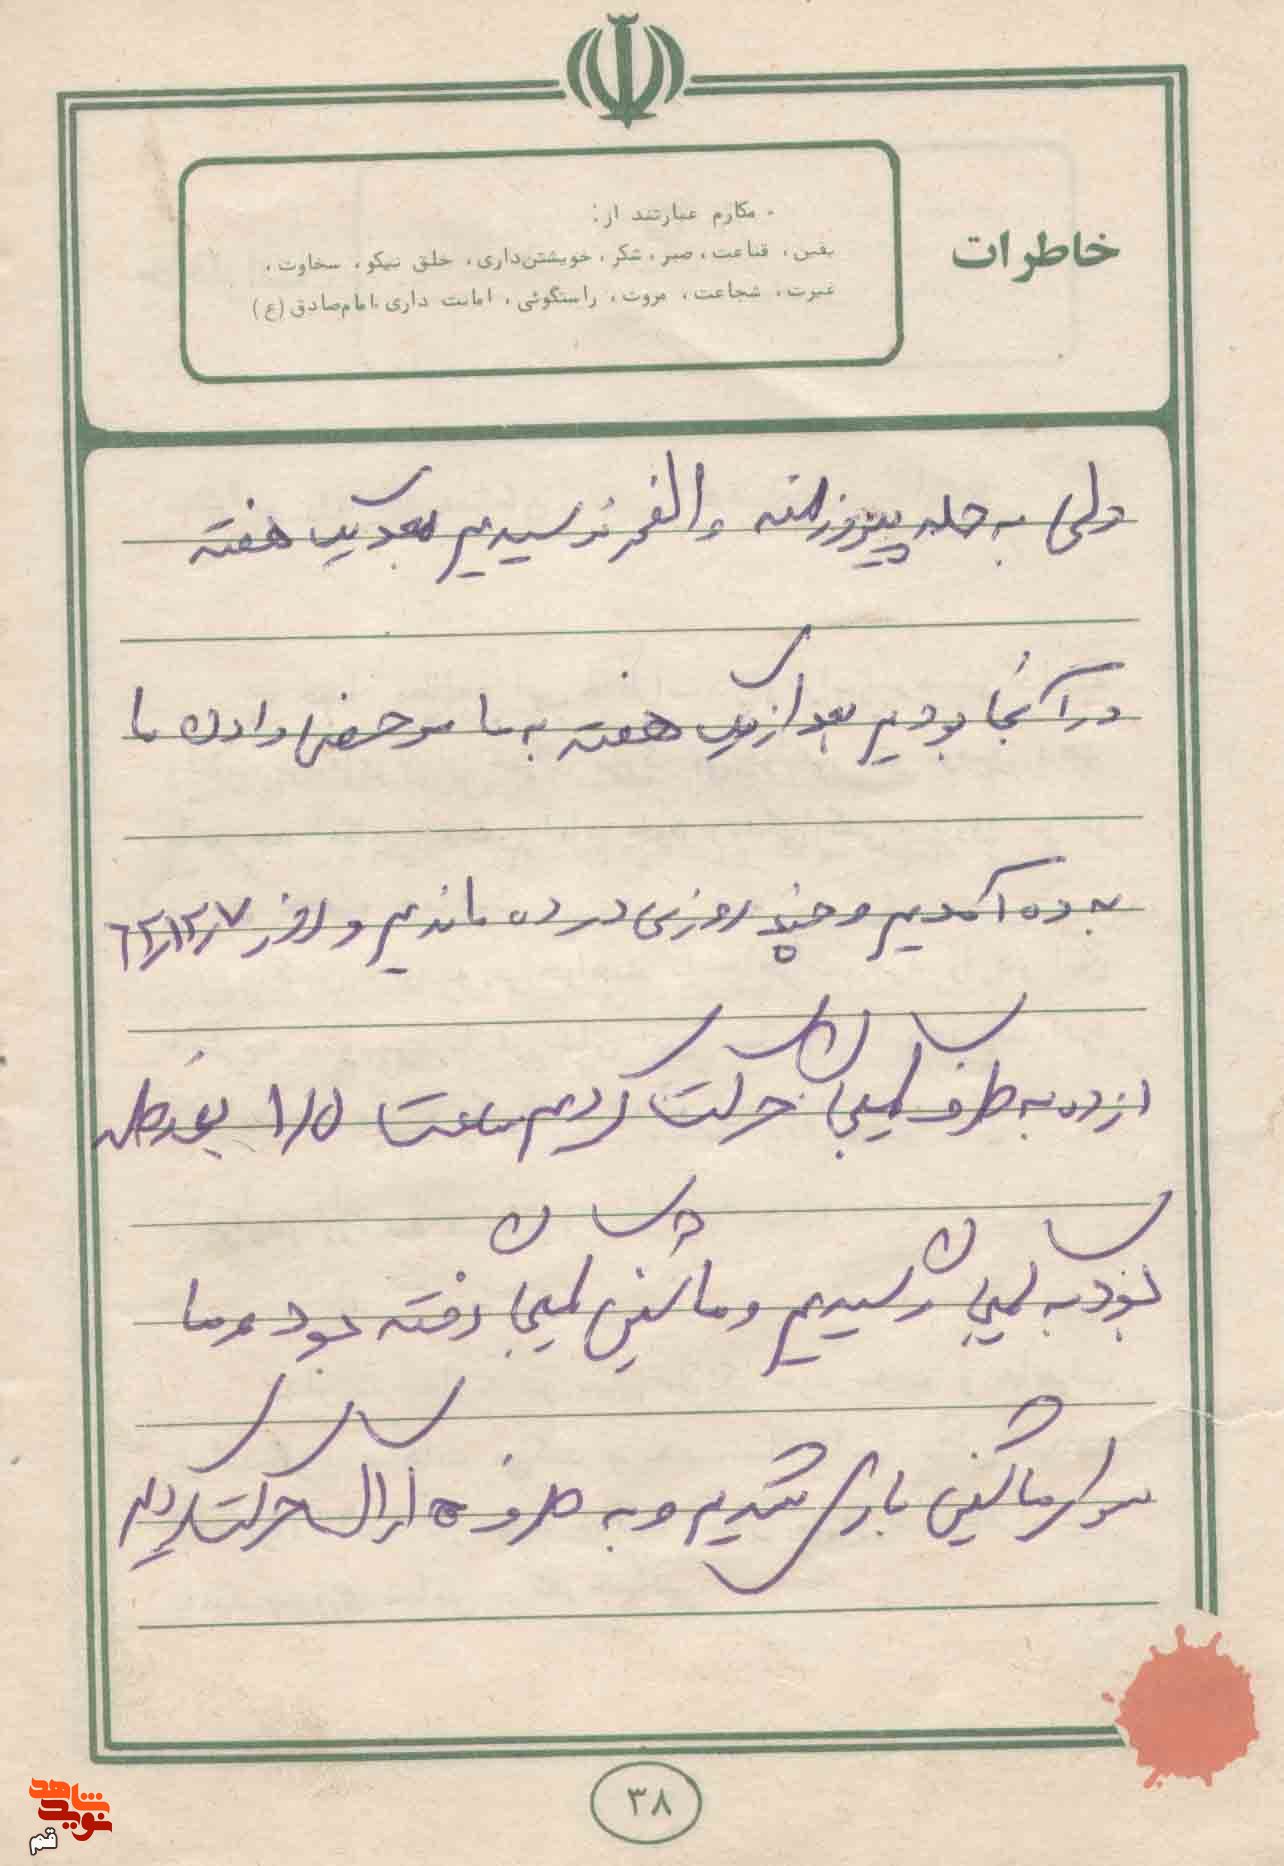 خاطرات
- مکارم عبارتند از:
یقین، قناعت، صبر، شکر، خویشتن‌داری، خلق نیکو، سخاوت،
غیرت، شجاعت، مروت، راستگوئی، امانت داری.امام‌صادق(ع)
ولی به حمله پیروزمنده والفجر نرسیدیم بعد یک هفته
در آنجا بودیم بعد از یک هفته به ما مرخصی دادن ما
به ده آمدیم و چند روزی در ده ماندیم و روز ۶۲/۱۲/۷
از ده به طرف حرکت کردیم ساعت ۱/۵ بعدظهر
بود به رسیدیم و ماشین رفته بود و ما
سوار ماشین باری شدیم و به طرف اراک حرکت کردیم
۳۸
نوید شاهد
قم